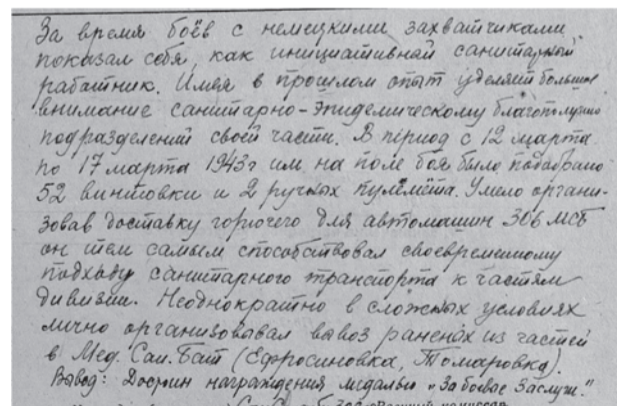 За время боёв с немецкими захватчиками
показал себя, как инициативный санитарный
работник. Имея в прошлом опыт уделяет большое
внимание санитарно-эпидемическому благополучию
подразделений своей части. В период с 12 марта
по 17 марта 1943г им на поле боя было подобрано
52 винтовки и 2 ручных пулемёта. Умело органи-
зовав доставку горючего для автомашин 306 МСБ
он тем самым способствовал своевременному
подходу санитарного транспорта к частям
дивизии. Неоднократно в сложных условиях
лично организовывал вывоз раненых из частей
в Мед. Сан. Бат (Ефросиновка, Томаровка).
Вывод: Достоин награждения медалью "За боевые Заслуги."